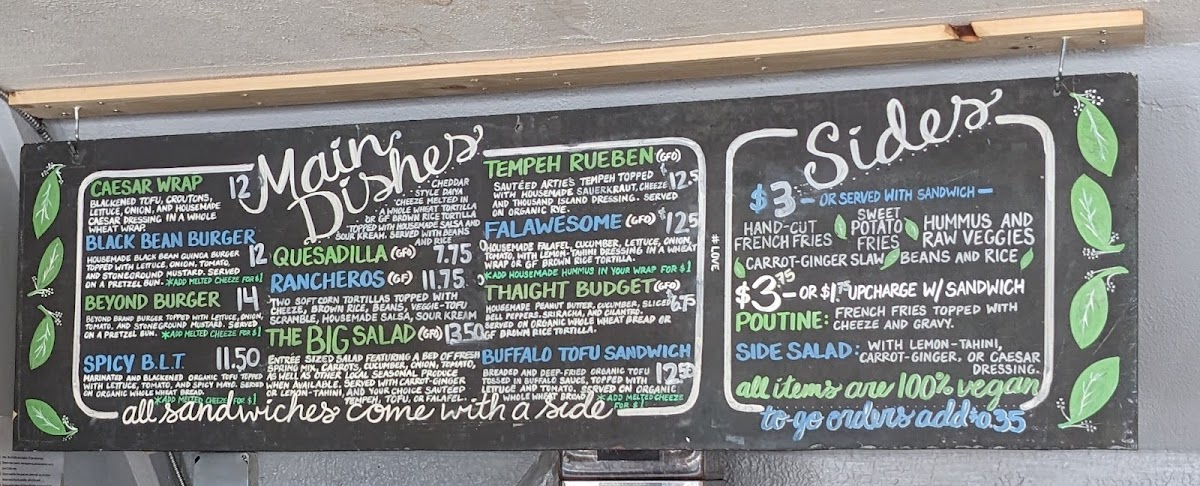 Main Dishes
CAESAR WRAP 12
BLACKENED TOFU, CROUTONS,
LETTUCE, ONION, AND HOUSEMADE
CAESAR DRESSING IN A WHOLE
WHEAT WRAP.
BLACK BEAN BURGER 12
HOUSEMADE BLACK BEAN QUINOA BURGER
TOPPED WITH LETTUCE, ONION, TOMATO,
AND STONEGROUND MUSTARD. SERVED
ON A PRETZEL BUN. *ADD MELTED CHEEZE FOR $1
BEYOND BURGER 14
BEYOND BRAND BURGER TOPPED WITH LETTUCE, ONION,
TOMATO, AND STONEGROUND MUSTARD. SERVED
ON A PRETZEL BUN. *ADD MELTED CHEEZE FOR $1
SPICY B.L.T. 11.50
MARINATED AND BLACKENED ORGANIC TOFU TOPPED
WITH LETTUCE, TOMATO, AND SPICY MAYO. SERVED
ON ORGANIC WHOLE WHEAT BREAD.
*ADD MELTED CHEEZE FOR $1
CHEDDAR
STYLE DAIYA
CHEEZE MELTED IN
A WHOLE WHEAT TORTILLA
OR GF BROWN RICE TORTILLA
TOPPED WITH HOUSEMADE SALSA AND
SOUR KREAM. SERVED WITH BEANS
AND RICE
QUESADILLA (GFO) 7.75
RANCHEROS (GF) 11.75
TWO SOFT CORN TORTILLAS TOPPED WITH
CHEEZE, BROWN RICE, BEANS, VEGGIE-TOFU
SCRAMBLE, HOUSEMADE SALSA, SOUR KREAM
THE BIG SALAD (GFO) 13.50
ENTRÉE SIZED SALAD FEATURING A BED OF FRESH
SPRING MIX, CARROTS, CUCUMBER, ONION, TOMATO,
AS WELL AS OTHER LOCAL, SEASONAL PRODUCE
WHEN AVAILABLE. SERVED WITH CARROT-GINGER
OR LEMON-TAHINI, AND YOUR CHOICE SAUTEED
TEMPEH, TOFU, OR FALAFEL.
TEMPEH RUEBEN (GFO) 12.5
SAUTÉED ARTIE'S TEMPEH TOPPED
WITH HOUSEMADE SAUERKRAUT, CHEEZE
AND THOUSAND ISLAND DRESSING. SERVED
ON ORGANIC RYE.
FALAWESOME (GFO) $12.5
HOUSEMADE FALAFEL, CUCUMBER, LETTUCE, ONION,
TOMATO, WITH LEMON-TAHINI DRESSING IN A WHEAT
WRAP OR GF BROWN RICE TORTILLA.
*ADD HOUSEMADE HUMMUS IN YOUR WRAP FOR $1
THAIGHT BUDGET (GFO) 6.75
HOUSEMADE PEANUT BUTTER, CUCUMBER, SLICED
BELL PEPPERS, SRIRACHA, AND CILANTRO.
SERVED ON ORGANIC WHOLE WHEAT BREAD OR
GF BROWN RICE TORTILLA.
BUFFALO TOFU SANDWICH 12.50
BREADED AND DEEP-FRIED ORGANIC TOFU
TOSSED IN BUFFALO SAUCE, TOPPED WITH
LETTUCE AND TOMATO, SERVED ON ORGANIC
WHOLE WHEAT BREAD *ADD MELTED CHEEZE
FOR $1
all sandwiches come with a side
#LOVE
Sides
$3 — OR SERVED WITH SANDWICH —
HAND-CUT FRENCH FRIES
SWEET POTATO FRIES
HUMMUS AND RAW VEGGIES
CARROT-GINGER SLAW
BEANS AND RICE
$3.75 — OR $1.75 UPCHARGE W/ SANDWICH
POUTINE: FRENCH FRIES TOPPED WITH
CHEEZE AND GRAVY.
SIDE SALAD: WITH LEMON-TAHINI,
CARROT-GINGER, OR CAESAR
DRESSING.
all items are 100% vegan
to-go orders add $0.35